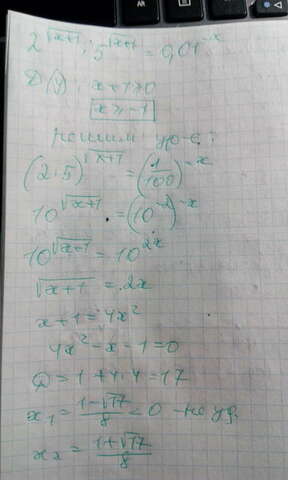 2^√(x+1) · 5^√(x+1) = 0,01^-x
D(y): x+1≥0
x ≥ -1
решим ур-е:
(2·5)^√(x+1) = (1/100)^-x
10^√(x+1) = (10^-2)^-x
10^√(x+1) = 10^2x
√(x+1) = 2x
x+1 = 4x²
4x²-x-1=0
D = 1+4·4=17
x₁ = (1-√17)/8 < 0 - не уд.
x₂ = (1+√17)/8